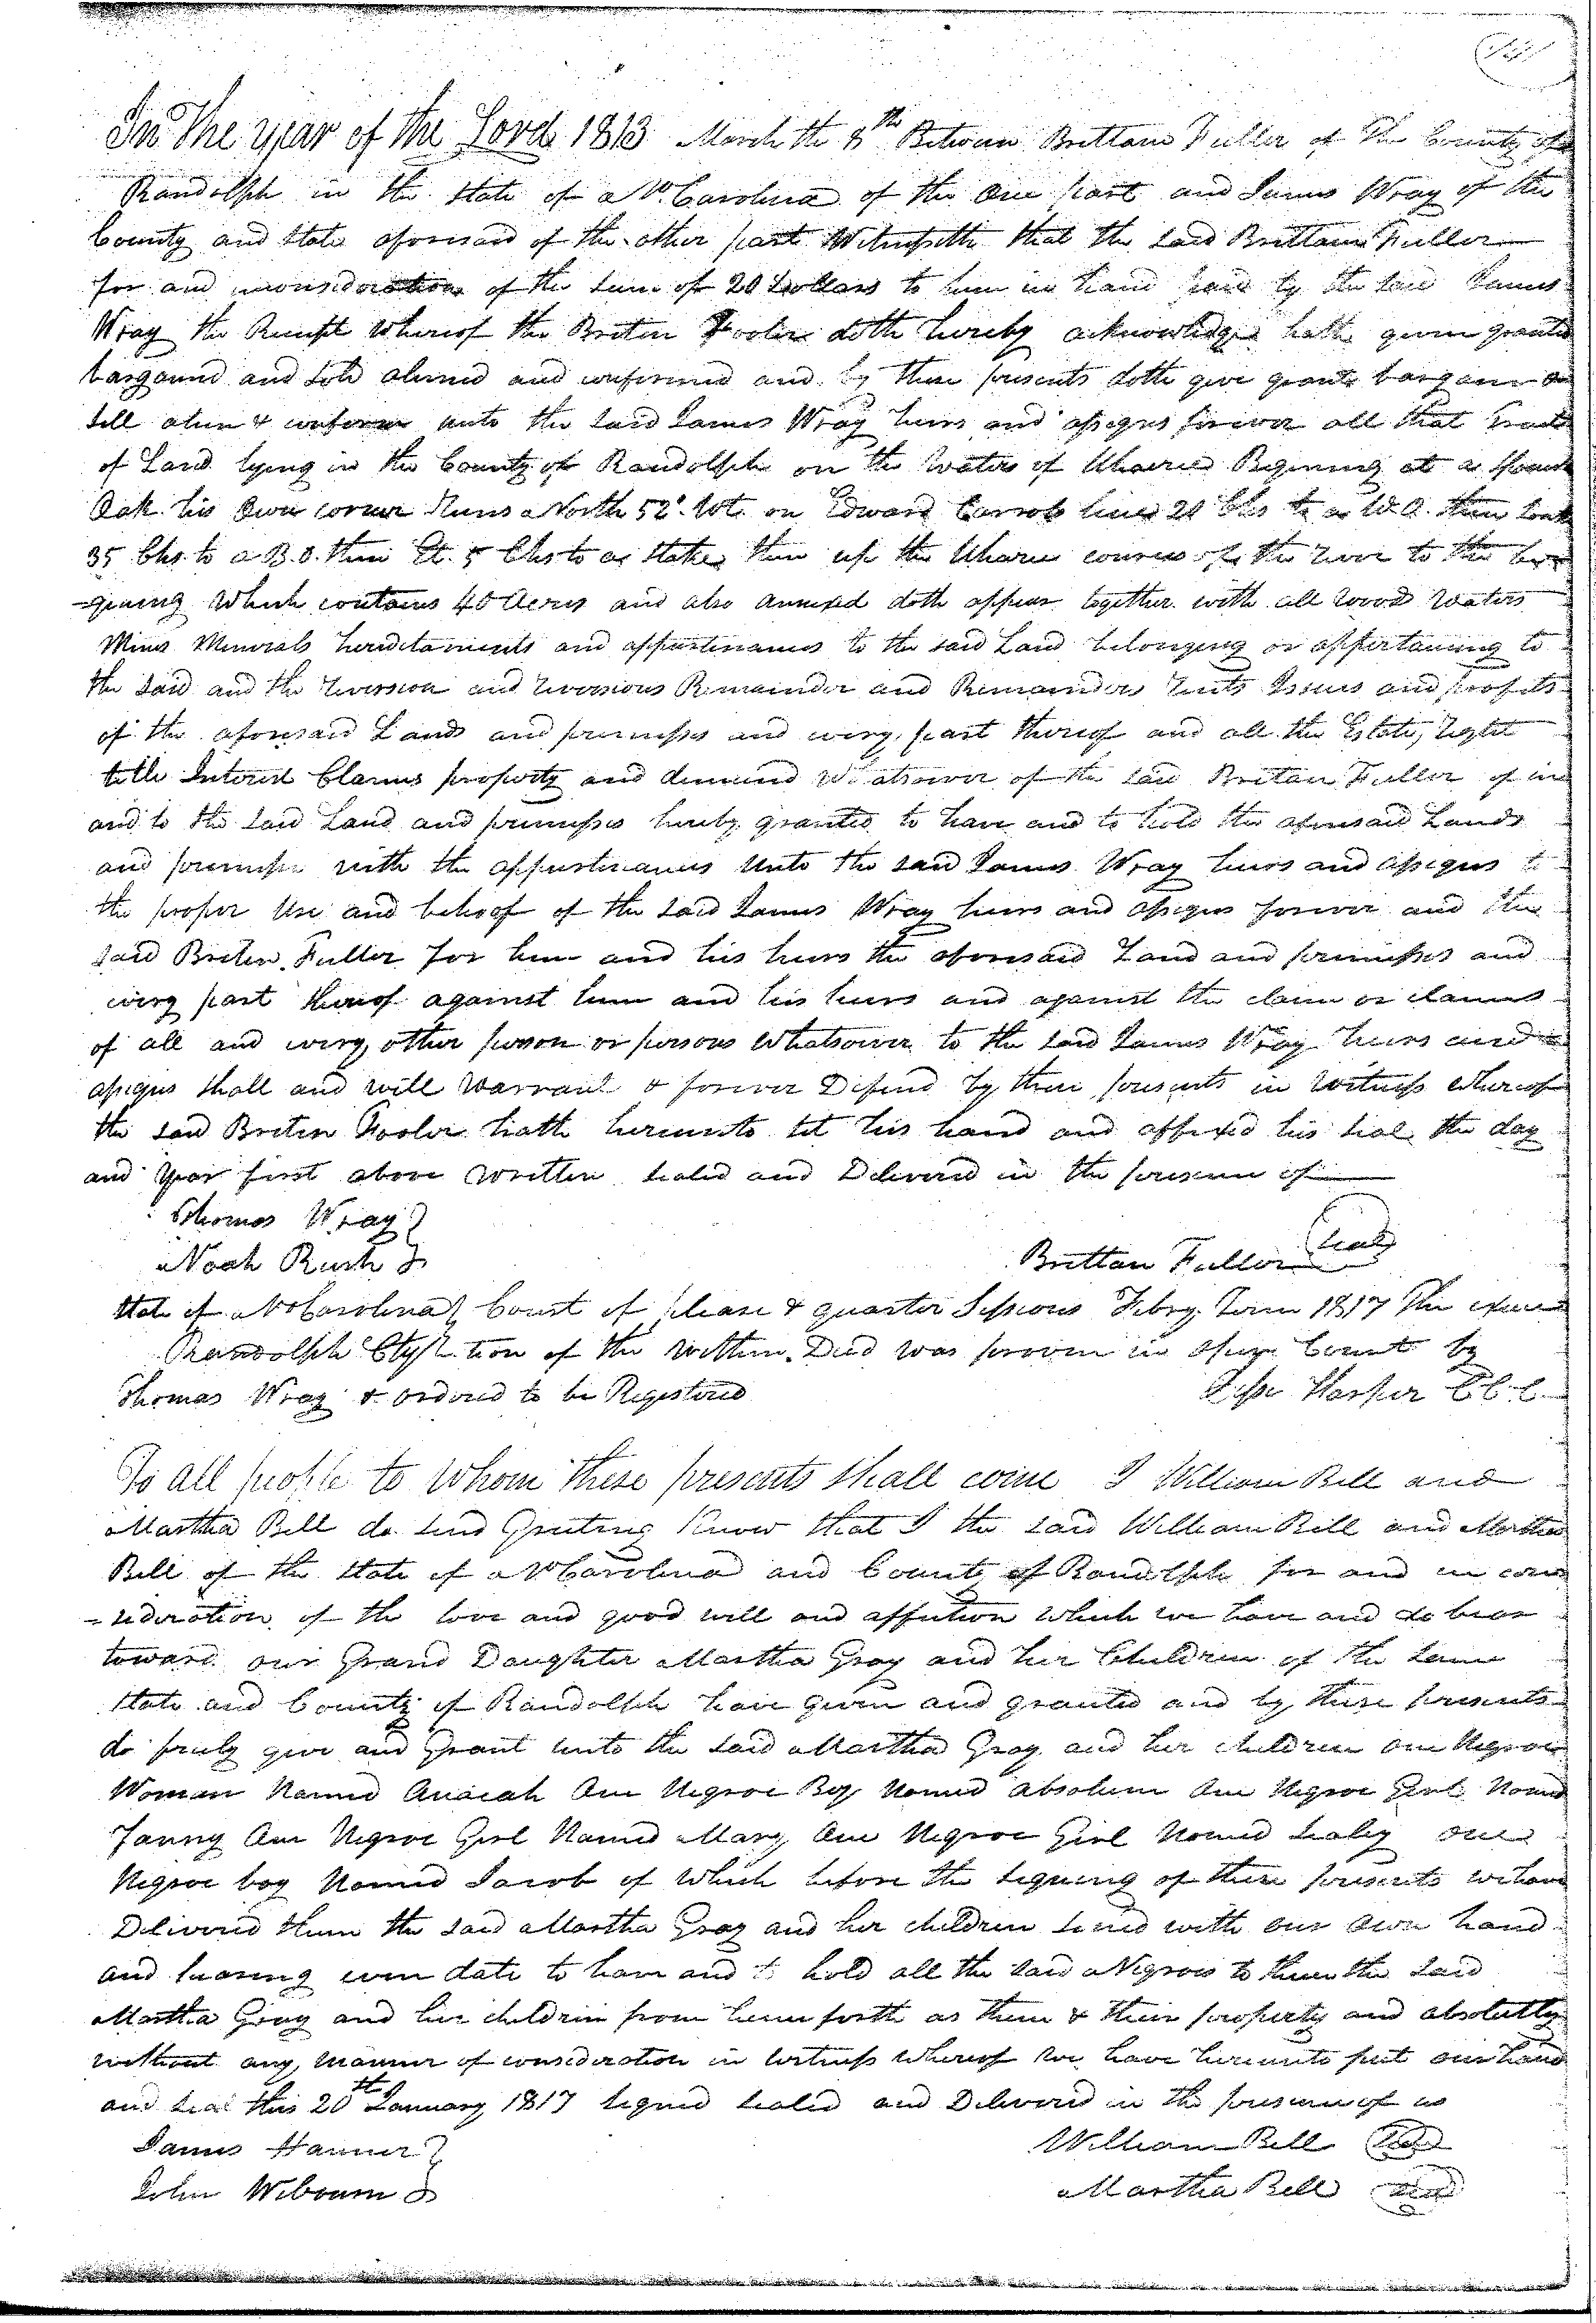 In The year of the Lord 1813 March the 8th Between Brittain Fuller of The County of
Randolph in the State of N. Carolina of the One part and James Wray of the
County and State aforesaid of the other part Witnesseth that the said Brittain Fuller
for and inconsideration of the sum of 20 Dollars to him in hand paid by the said James
Wray the Receipt whereof the Briten Fooler doth hereby acknowledge hath given granted
bargained and sold aliened and confirmed and by these presents doth give grant bargain &
sell alien & confirm unto the said James Wray heirs and assigns forever all that tract
of Land lying in the County of Randolph on the Waters of Uharie Begining at a
Oak his Own corner Runs North 52° Wt. on Edward line 21 Chs to a W.O. then South
35 Chs. to a B.O. then Et. 5 Chs to a Stake then up the Uharie courses of the river to the be
-gining Which contains 40 Acres and also annexed doth appear together with all Woods Waters
Mines Minerals hereditaments and appurtenances to the said Land belonging or appertaining to
the said and the reversion and reversions Remainder and Remainders rents Issues and profits
of the aforesaid Lands and premisses and every part thereof and all the Estate, right
title Interest Claims property and demand Whatsoever of the said Britan Fuller of in
and to the said Land and premisses hereby granted to have and to hold the aforesaid Lands
and premisses with the appurtenances Unto the said James Wray heirs and assigns to
the proper Use and behoof of the said James Wray heirs and assigns forever and the
said Briten Fuller for him and his heirs the aforesaid Land and premisses and
every part thereof against him and his heirs and against the claim or claims
of all and every other person or persons Whatsoever to the said James Wray heirs and
assigns shall and will Warrant & forever Defend by these presents in Witness whereof
the said Briten Fooler hath hereunto set his hand and affixed his seal the day
and Year first above written sealed and Delivered in the presence of
Thomas Wray
Noah Rush
Brittan Fuller (seal)
State of No Carolina Court of please & quarter Sessions Febry. Term 1817 The execu
Randolph Cty tion of the within Deed was proven in open Court by
Thomas Wray & ordered to be Registered
Jesse Harper C.C.C.
To all people to Whom these presents shall come I William Bell and
Martha Bell do send Greeting Know that I the said William Bell and Martha
Bell of the State of N Carolina and County of Randolph for and in con
-sideration of the love and good will and affection which we have and do bear
toward our Grand Daughter Martha Gray and her Children of the same
State and County of Randolph have given and granted and by these presents
do freely give and Grant unto the said Martha Gray and her children one Negroe
Woman Named One Negroe Boy Named Absolem One Negroe Girl Named
Fanny One Negroe Girl Named Mary One Negroe Girl Named Sealey one
Negroe boy Named Jacob of Which before the signing of these presents we have
Delivered them the said Martha Gray and her children signed with our own hand
and bearing even date to have and to hold all the said Negroes to them the said
Martha Gray and her children from henceforth as them & their property and absolutly
without any manner of consideration in Witness Whereof we have hereunto put our hand
and seal this 20th January 1817 signed sealed and Delivered in the presence of us
James Hanner
John Wiborn
William Bell (seal)
Martha Bell (seal)